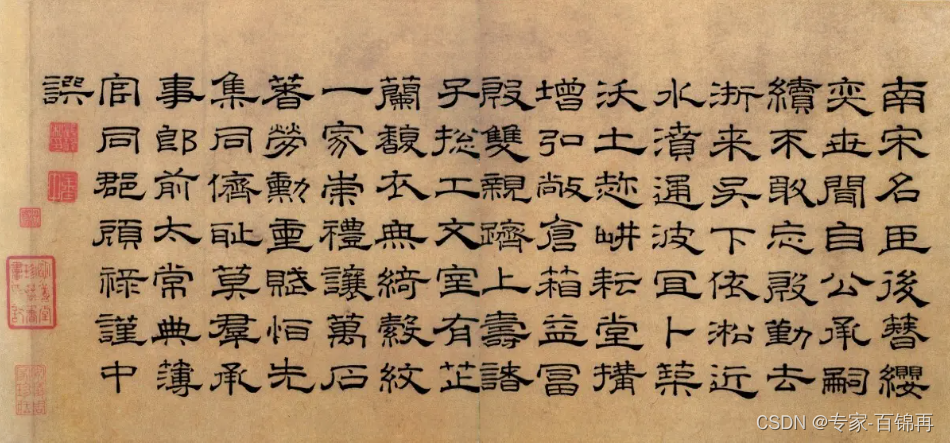 南宋名臣後簪纓
奕世聞自公承嗣
續不敢忘殷勤去
浙来吴下依淞近
水濆通波宜卜築
沃土趂畊耘堂搆
增弘敞倉箱益冨
殷雙親躋上壽諸
子総工文室有芷
蘭馥衣無綺縠紋
一家崇禮讓萬石
著勞勳重賦怕先
集同儕耻莫羣承
事郎前太常典簿
官同郡頋祿謹中
譔
CSDN @专家-百锦再